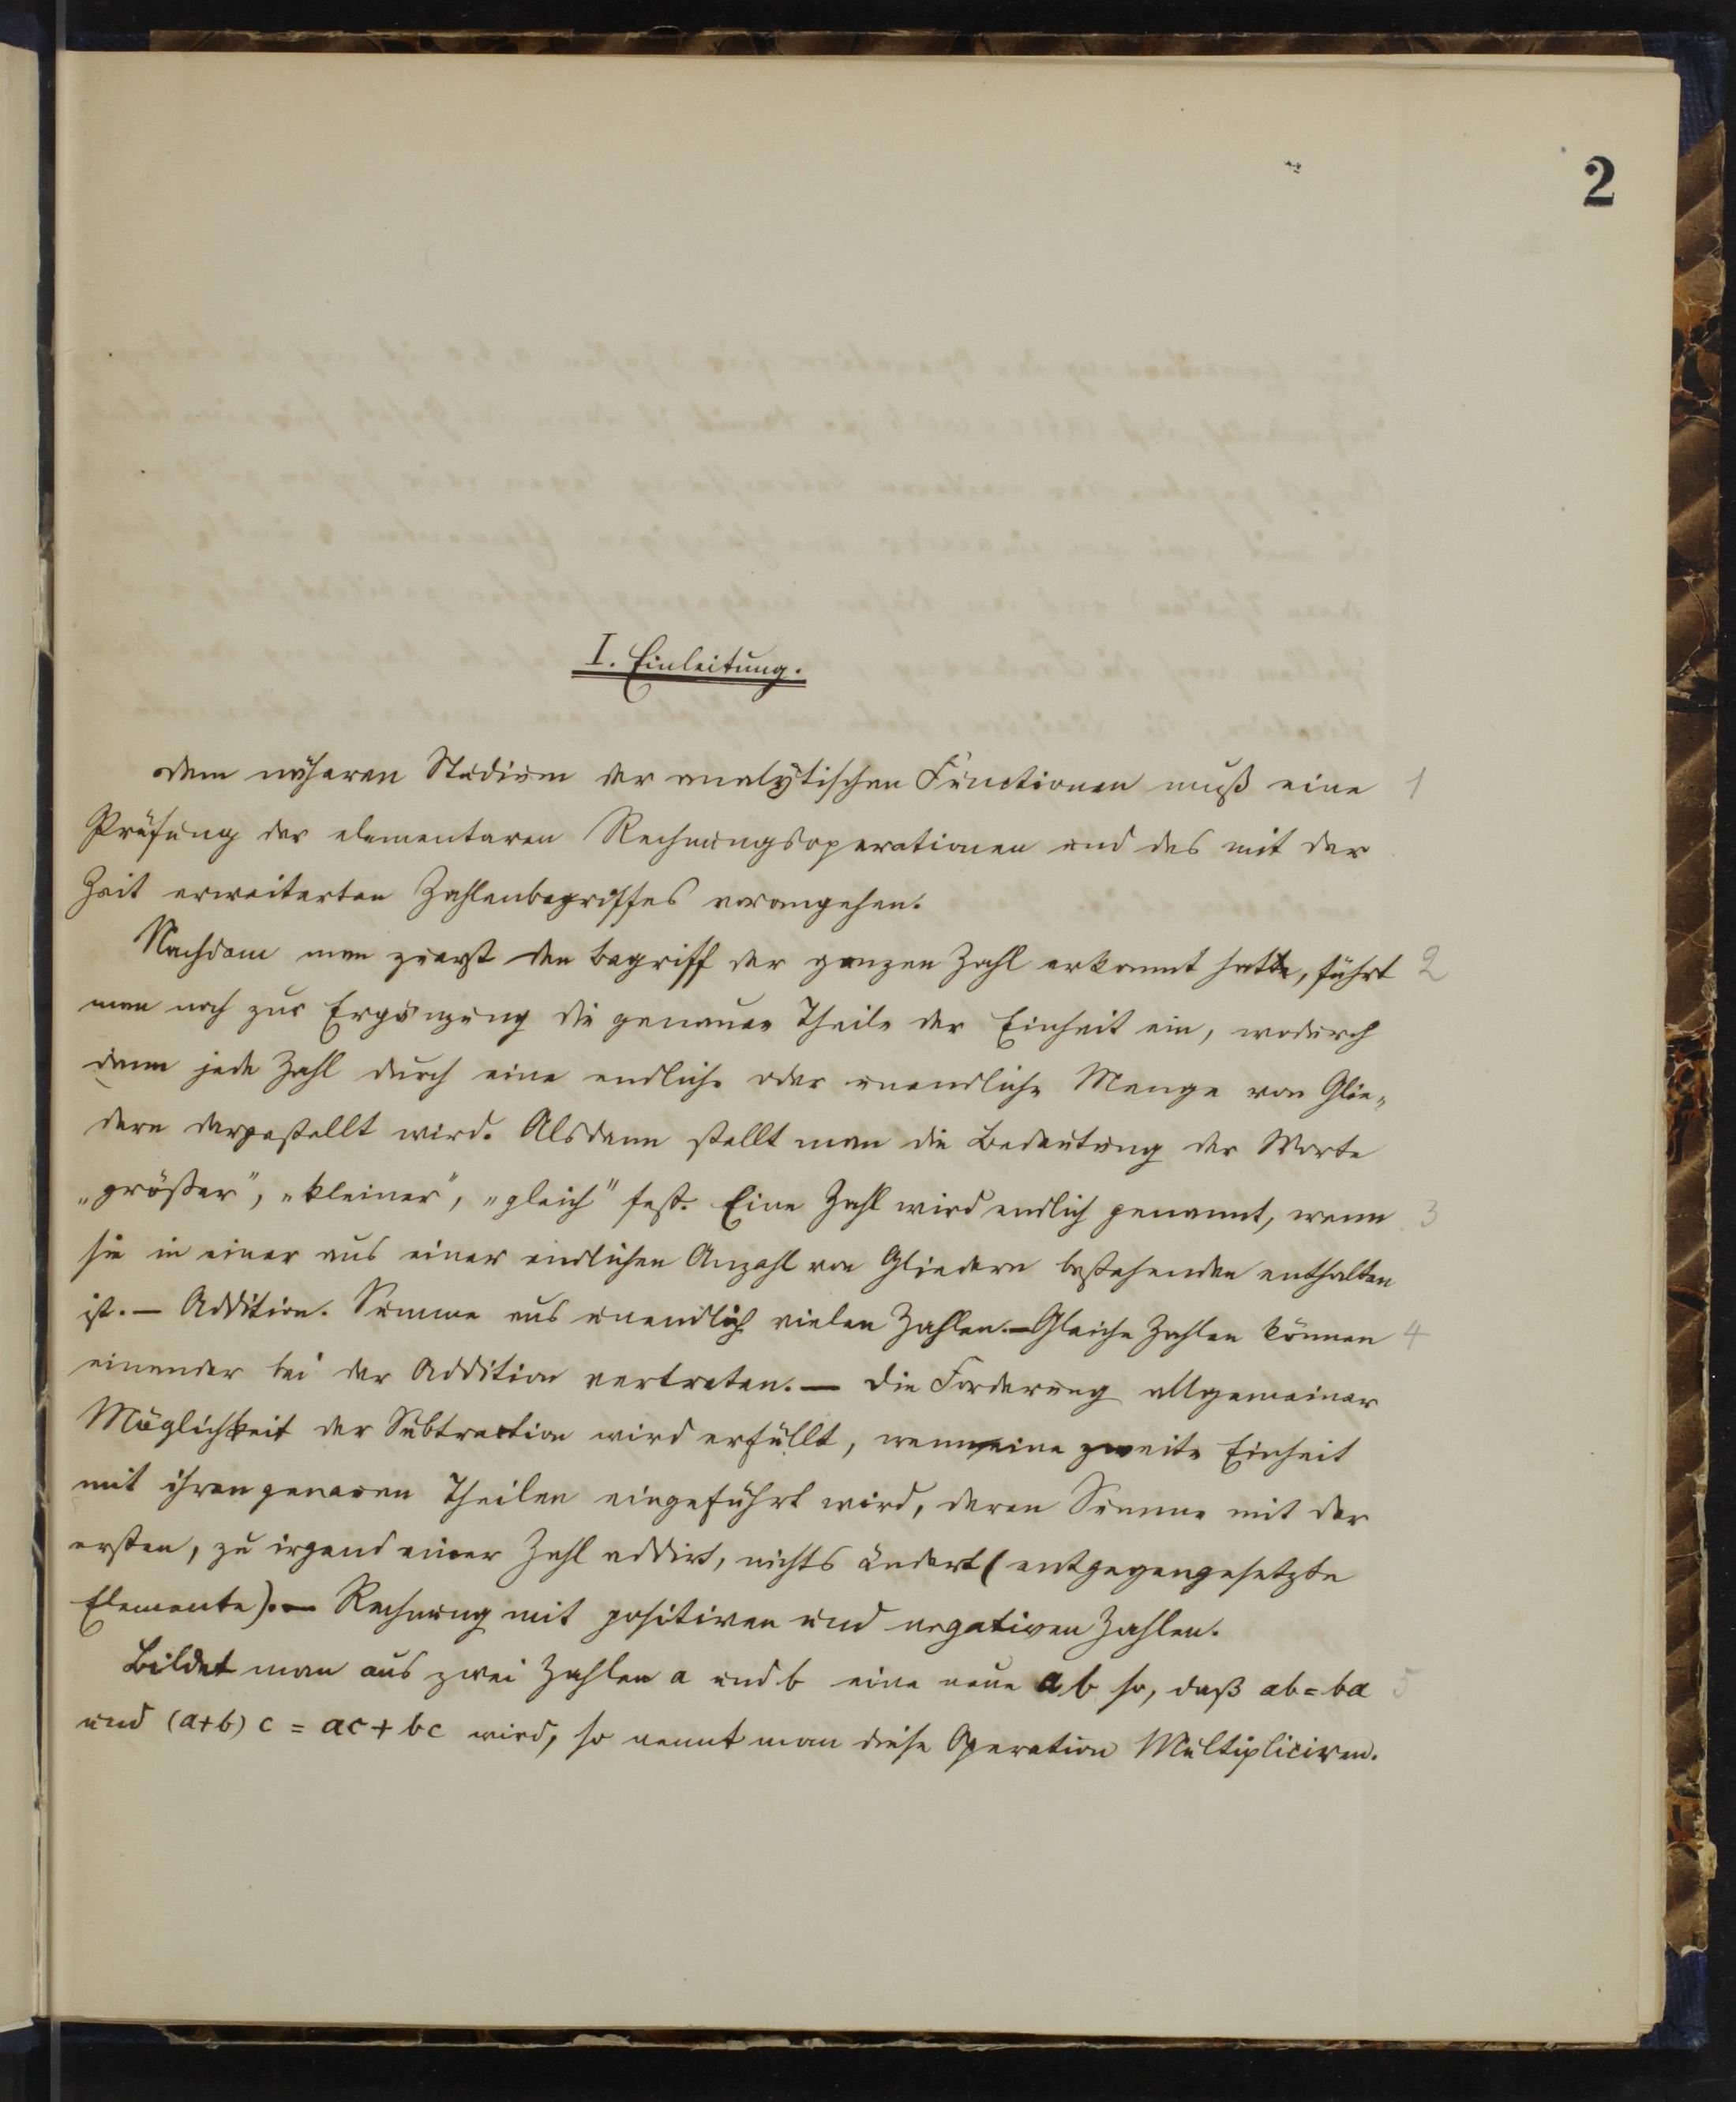 2
I. Einleitung.
Dem näheren Studium der analytischen Functionen muß eine 1
Prüfung der elementaren Rechnungsoperationen und des mit der
Zeit erweiterten Zahlenbegriffes vorangehen.
Nachdem man zuerst den Begriff der ganzen Zahl erkannt hatte, führt 2
man noch zur Ergänzung die genauen Theile der Einheit ein, wodurch
dann jede Zahl durch eine endliche oder unendliche Menge von Glie„
dern dargestellt wird. Alsdann stellt man die Bedeutung der Worte
„größer", „kleiner", „gleich" fest. Eine Zahl wird endlich genannt, wenn 3
sie in einer aus einer endlichen Anzahl von Gliedern bestehenden enthalten
ist. — Addition. Summe aus unendlich vielen Zahlen. — Gleiche Zahlen können 4
einander bei der Addition vertreten. — Die Forderung allgemeiner
Möglichkeit der Subtraction wird erfüllt, wenn eine zweite Einheit
mit ihren genauen Theilen eingeführt wird, deren Summe mit der
ersten, zu irgend einer Zahl addirt, nichts ändert (entgegengesetzte
Elemente). — Rechnung mit positiven und negativen Zahlen.
Bildet man aus zwei Zahlen a und b eine neue ab so, daß ab = ba 5
und (a+b) c = ac + bc wird, so nennt man diese Operation Multipliciren.